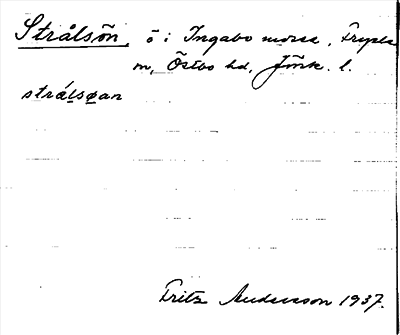 Strålsön, ö i Ingabo mosse, Fryele
sn, Östbo hd, Jönk. l.
strålsøan
Fritz Andersson 1937.